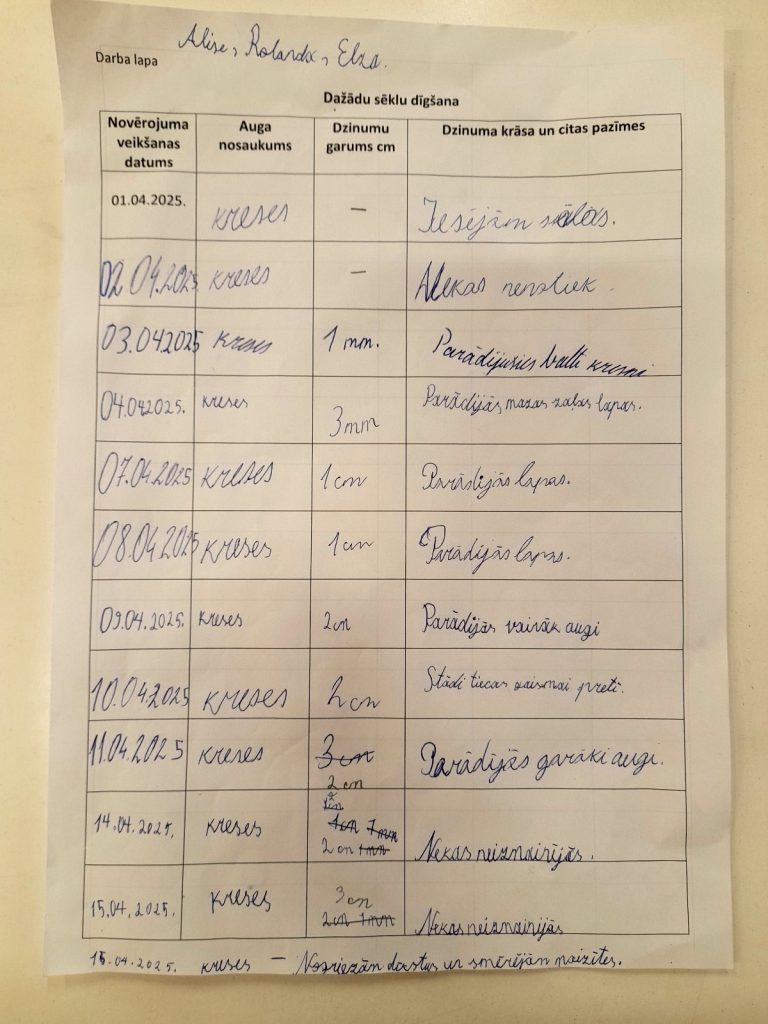 Alise, Rolands, Elza.
Darba lapa
Dažādu sēklu dīgšana
Novērojuma veikšanas datums Auga nosaukums Dzinumu garums cm Dzinuma krāsa un citas pazīmes
01.04.2025. kreses – Iesējām sēklas.
02.04.2025. kreses – Nekas nenotiek.
03.042025 kreses 1 mm. Parādījusies balti
04.042025. kreses 3mm Parādījās mazas zaļas lapas.
07.04.2025 kreses 1cm Parādījās lapas.
08.04.2025 kreses 1cm Parādījās lapas.
09.04.2025. kreses 2cm Parādījās vairāk augi
10.04.2025 kreses 2cm Stādi tiecas gaismai pretī.
11.04.2025 kreses 3cm 2cm Parādījās garāki augi.
14.04.2025. kreses 2cm 1mm Nekas neizmainījās.
15.04.2025. kreses 3cm 2cm 1mm Nekas neizmainijās
15.04.2025. kreses – Nogriezām un smērējām maizītes.